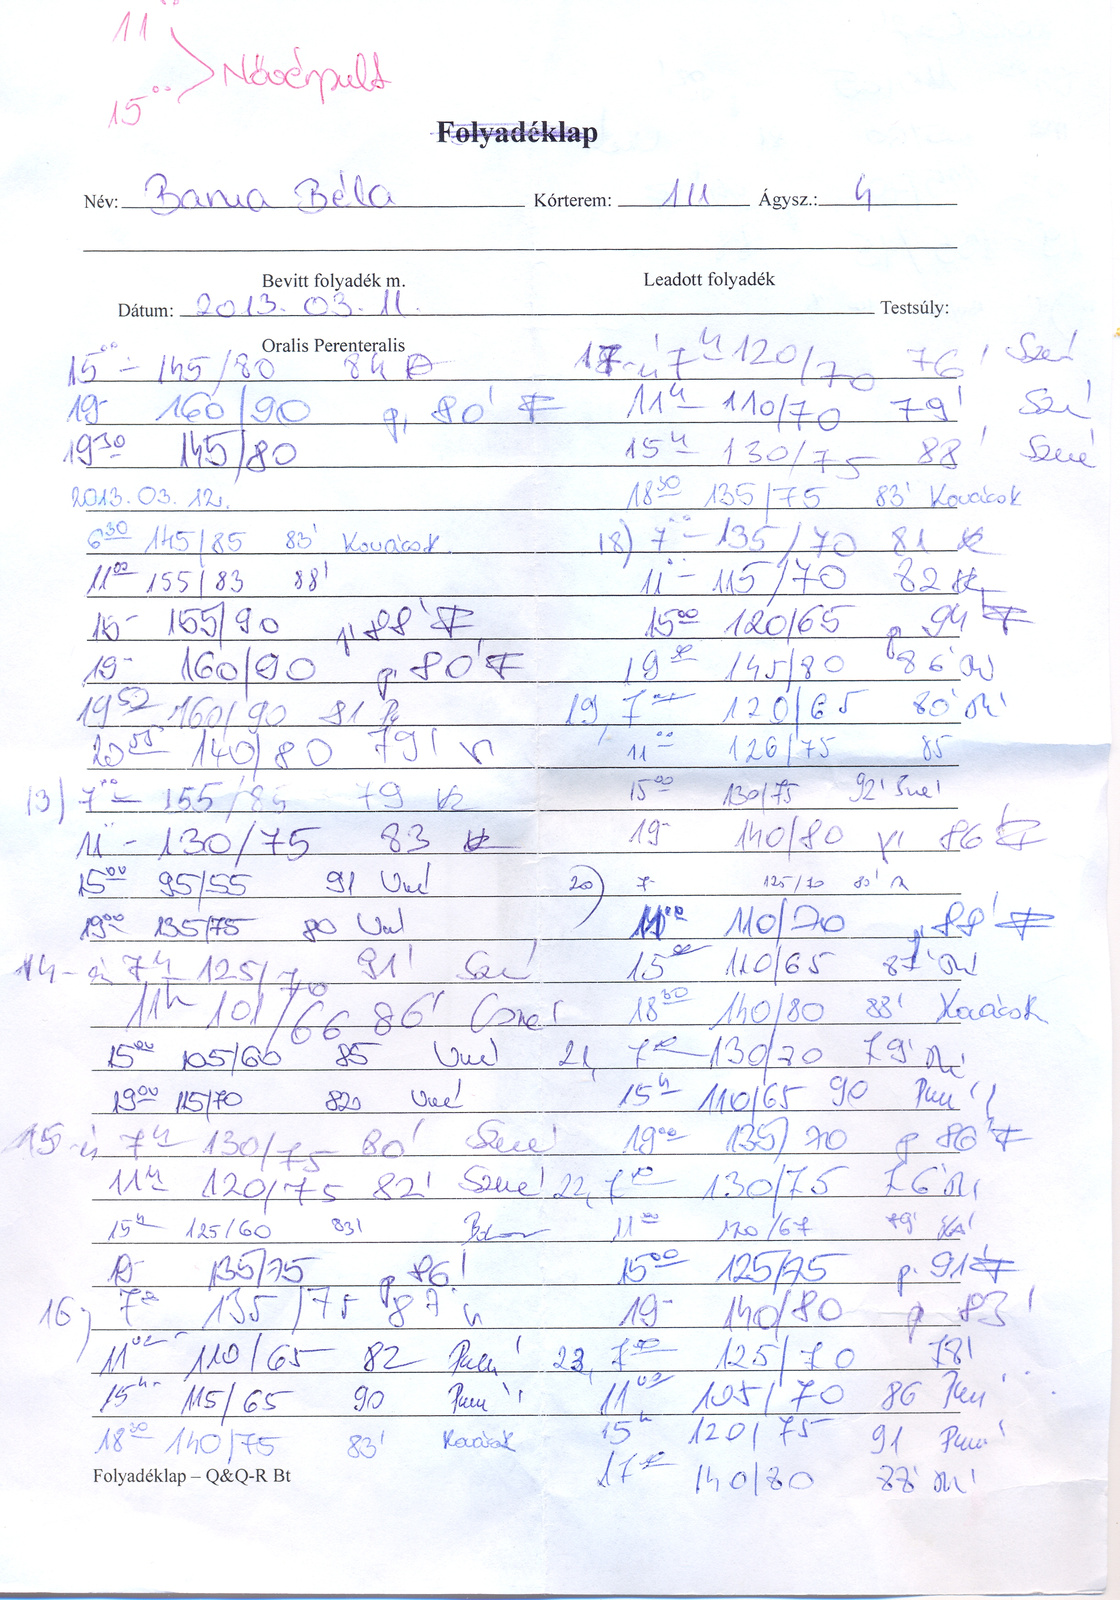 11 00
Nővérpult
15 00
Folyadéklap
Név: Barna Béla Kórterem: 111 Ágysz.: 4
Bevitt folyadék m. Leadott folyadék
Dátum: 2013. 03. 11. Testsúly:
Oralis Perenteralis
15 00 - 145/80 84
19- 160/90 p, 80'
19 30 145/80
2013. 03. 12.
6 30 145/85 83' Kovácsok
11 00 155/83 88'
15- 155/90 p 88'
19- 160/90 p. 80'
19 52 160/90 81
20 55 140/80 79'
13) 7 00 - 155/85 79
11 - 130/75 83
15 00 95/55 91
19 00 135/75 80
14-én 7h 125/70 91'
11h 101/66 86'
15 00 105/60 85
19 00 115/70 82
15-én 7h 130/75 80' Szné
11h 120/75 82' Szné
15h 125/60 83'
19- 135/75 p 86'
16) 7 135/75 87
11 00 110/65 82
15h 115/65 90
18 30 140/75 83' Kovácsok
17-én 7h 120/70 76'
11h 110/70 79'
15h 130/75 88' Szné
18 30 135/75 83' Kovácsok
18) 7 00 - 135/70 81
11 - 115/70 82
15 00 120/65 p 94'
19 145/80 86'
19, 7 120/65 80'
11 00 126/75 85
15 00 130/75 92' Szné
19- 140/80 86
20) 7- 125/70 80'
11 00 110/70 p 88'
15 110/65 87'
18 30 140/80 88' Kovácsok
21, 7 130/70 79'
15h 110/65 90
19 00 135/70 p 86'
22, 7 130/75 76'
11 00 120/67 79'
15 00 125/75 p. 91'
19- 140/80 p 83'
23, 7 00 125/70 78'
11 00 105/70 86
15h 120/75 91
17 140/80 88'
Folyadéklap – Q&Q-R Bt